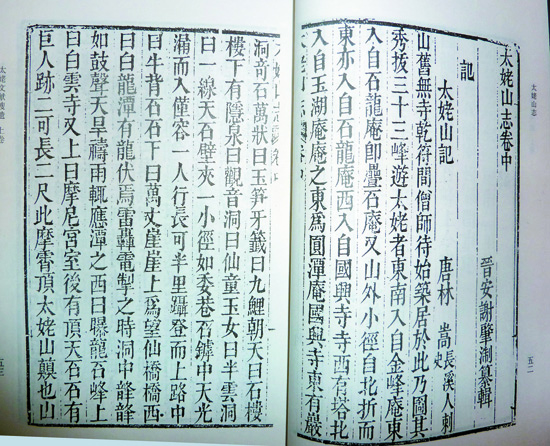 太姥山志
五二
太姥山志卷中
晉安謝肇淛纂輯
記
太姥山記
唐林嵩長溪人刺史
山舊無寺乾符間僧師待始築居於此乃圖其
秀拔三十三峰遊太姥者東南入自金峰庵東
入自石龍庵即疊石庵又山外小徑自北折而
東亦入自石龍庵西入自國興寺寺西有塔北
入自玉湖庵庵之東爲圓潭庵國興寺東有巖
洞奇石萬狀曰玉笋牙籤曰九鯉朝天曰石樓
樓下有隱泉曰觀音洞曰仙童玉女曰半雲洞
曰一線天石壁夾一小徑如委巷石罅中天光
漏而入僅容一人行長可半里躡登而上路中
曰牛背石石下曰萬丈崖崖上爲望仙橋橋西
曰白龍潭有龍伏焉雷轟電掣之時洞中韸韸
如鼓聲天旱禱雨輒應潭之西曰曝龍石峰上
曰白雲寺又上曰摩尼宮室後有頂天石石有
巨人跡二可長二尺此摩霄頂太姥山巔也山
太姥文獻搜遺
五三